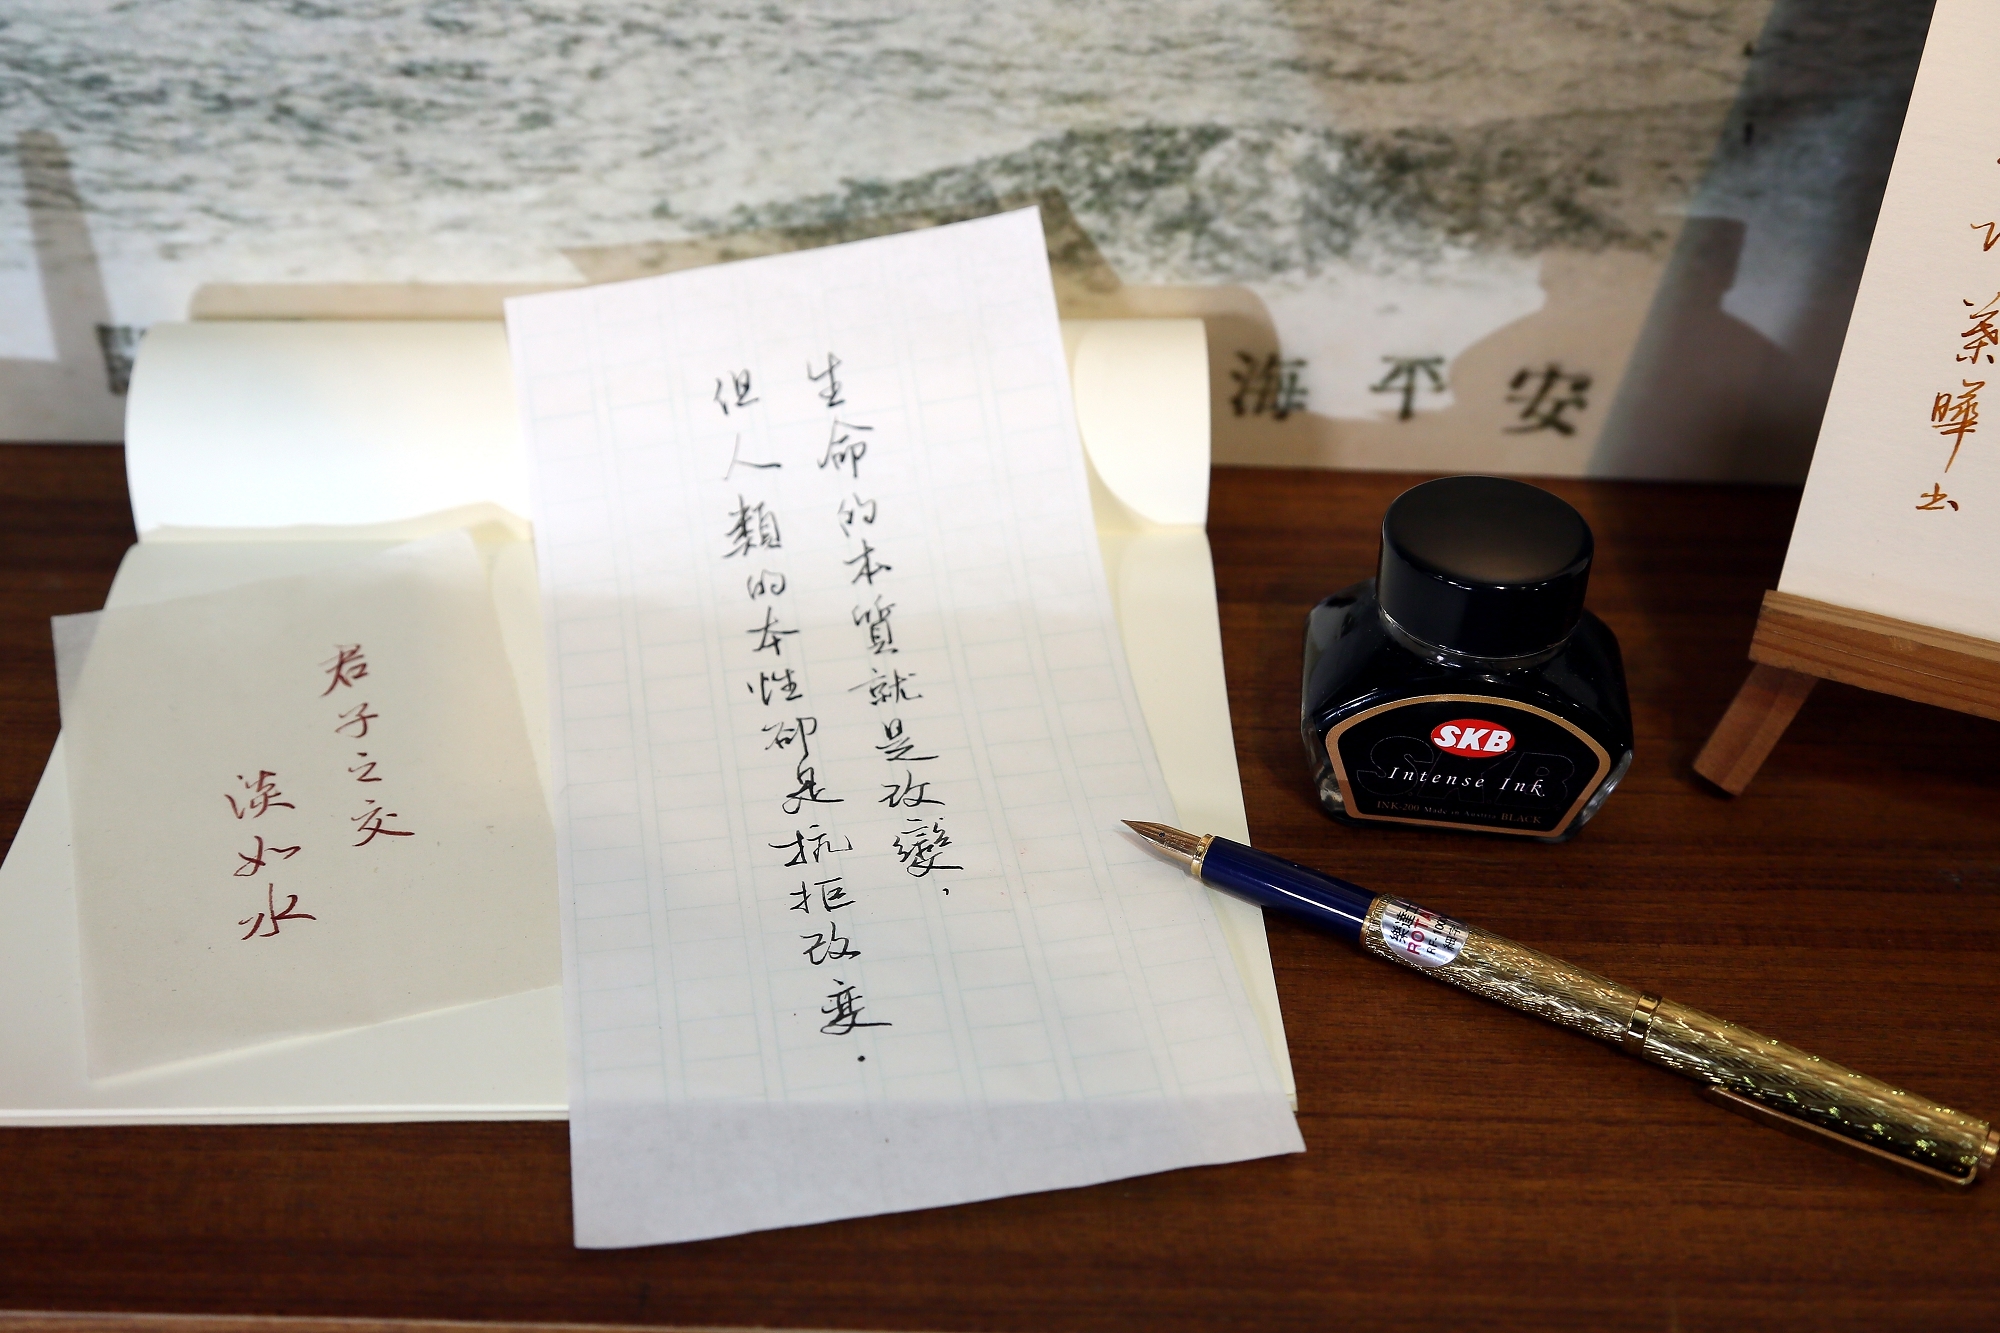 生命的本質就是改變，
但人類的本性卻是抗拒改變．
君子之交
淡如水
海平安
葉曄書
SKB
Intense Ink
INK-200 Made in Austria BLACK